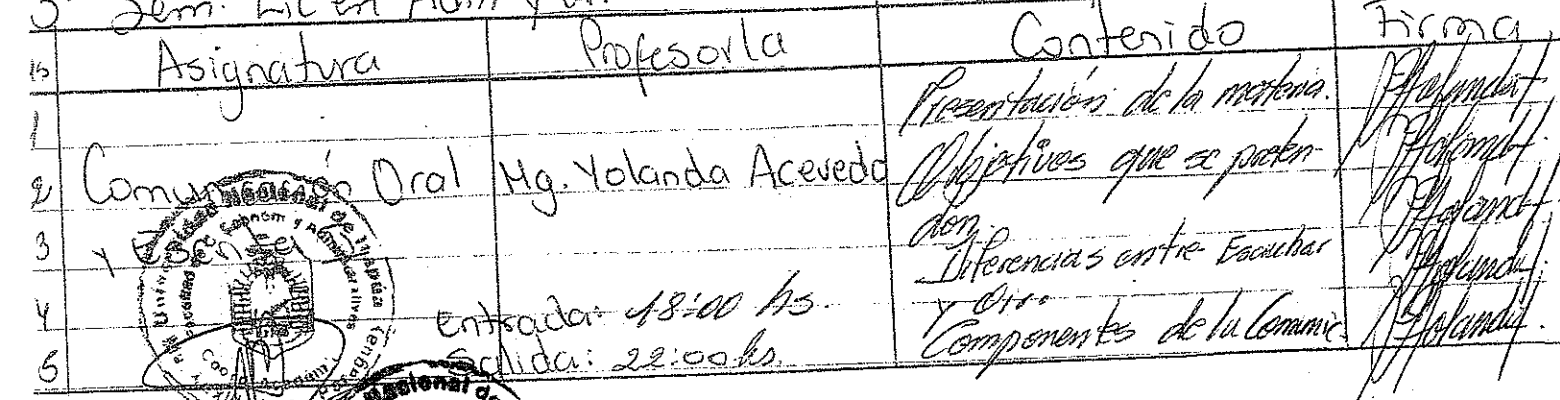 Sem. Lic en Adm
Asignatura Profesor/a Contenido Firma
1 Presentación de la materia.
2 Comunicación Oral Mg. Yolanda Acevedo Objetivos que se preten-
3 y den.
Diferencias entre Escuchar
4 Entrada: 18:00 hs. y Oir.
5 Salida: 22:00 hs. Componentes de la Comunic.
Universidad Nacional de
Nacional de